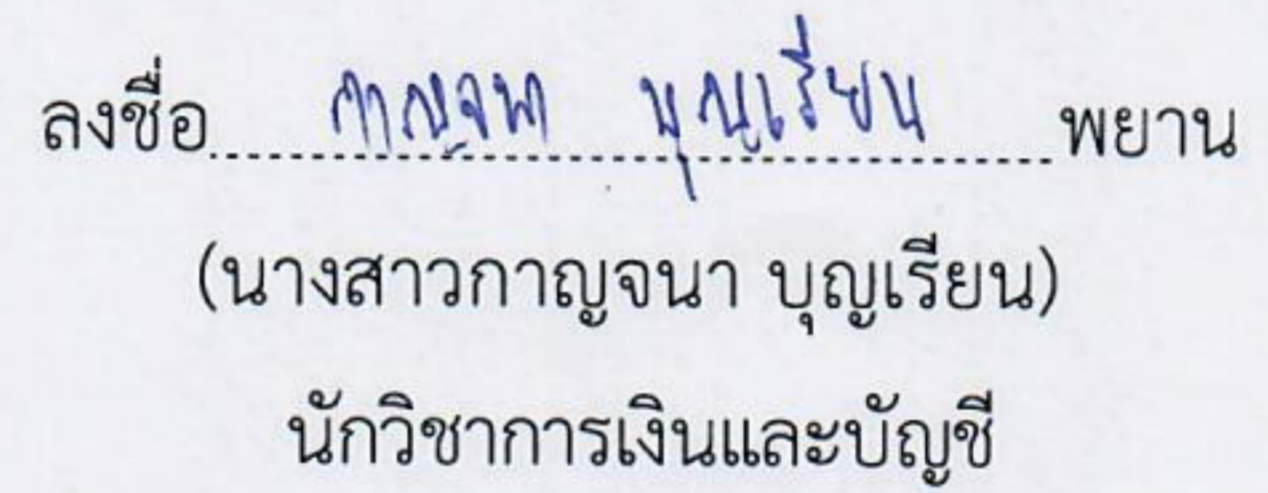 ลงชื่อ กาญจนา บุญเรียน พยาน
(นางสาวกาญจนา บุญเรียน)
นักวิชาการเงินและบัญชี